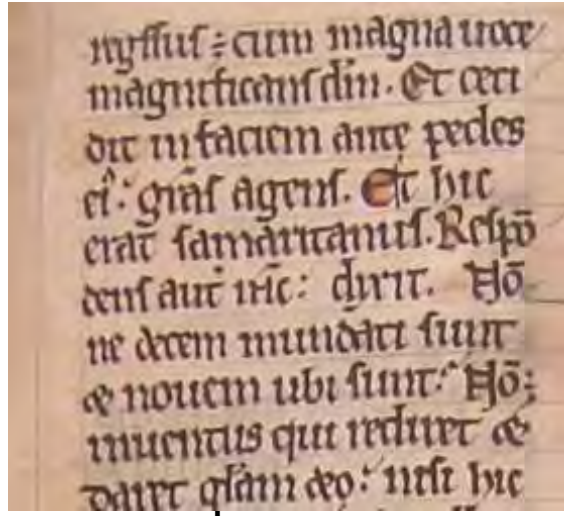 regressus est cum magna uoce
magnificans dm̄. Et ceci
dit in faciem ante pedes
ei᷒: grās agens. Et hic
erat samaritanus. Respō
dens aut̄ ih̄c: dixit. Nō
ne decem mundati sunt
& nouem ubi sunt: Nō
inuentus qui rediret &
daret glām deo: nisi hic